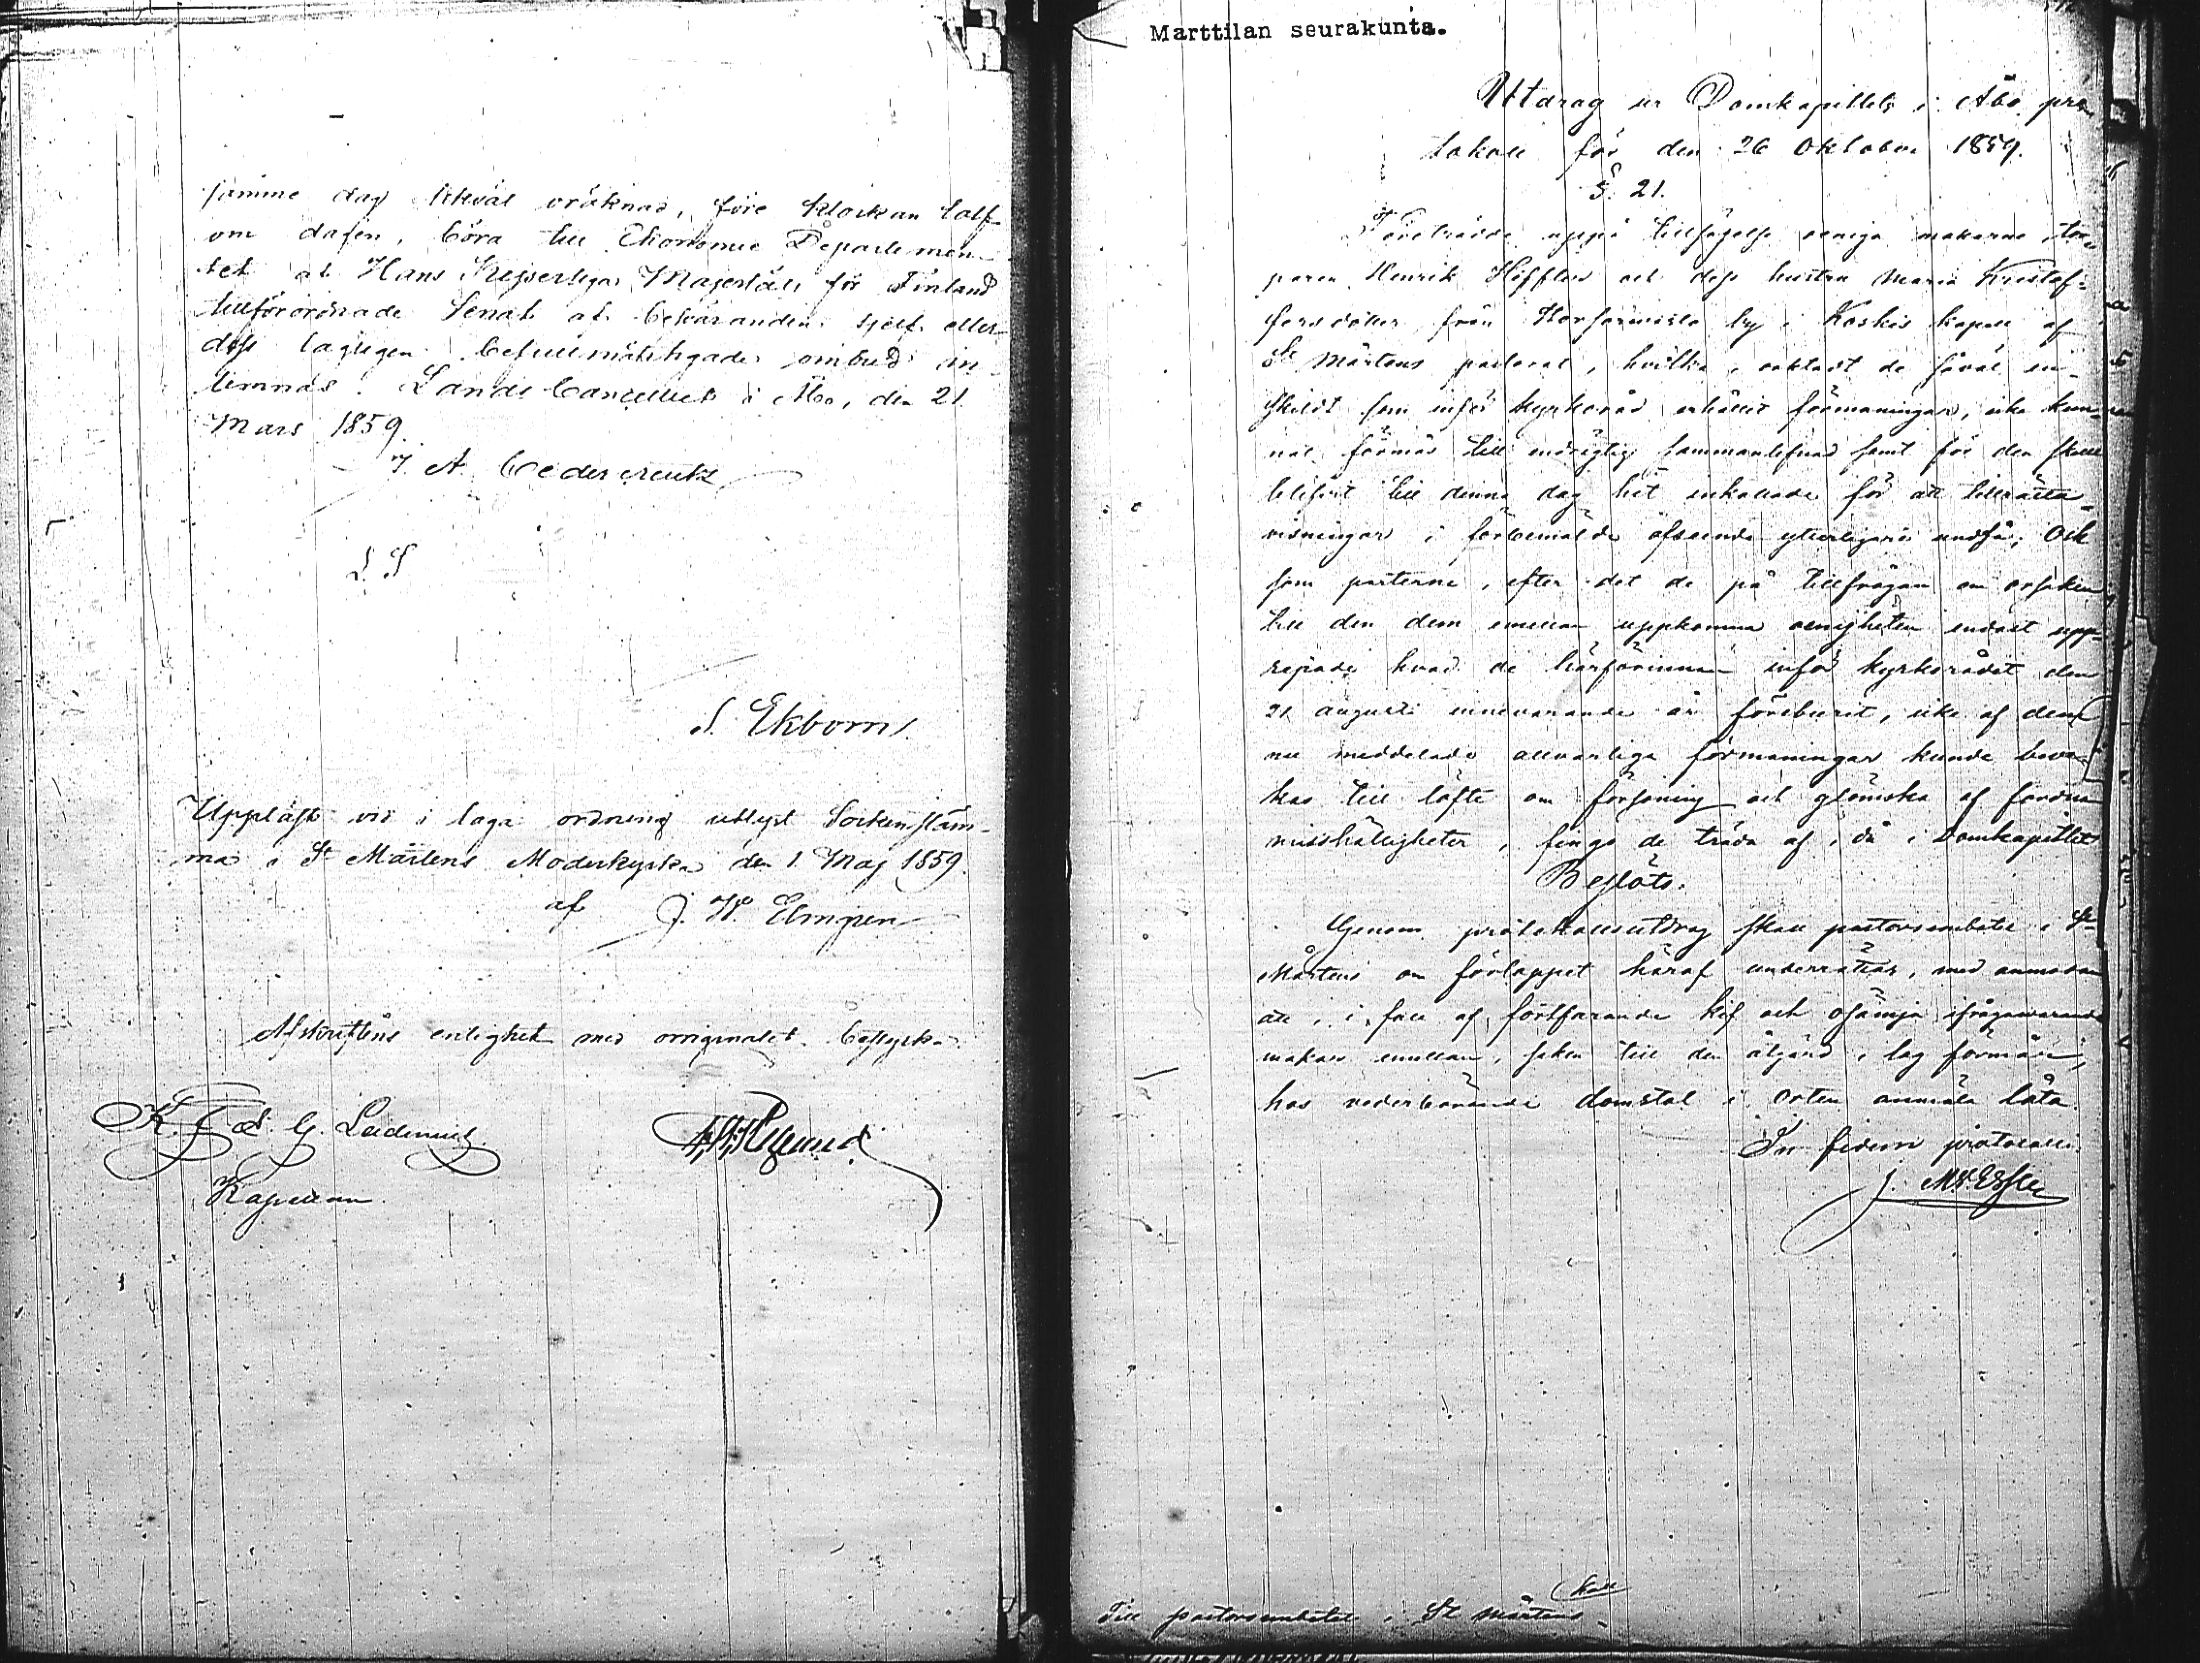 samme dag likväl oräknad, före klockan tolf
om dagen, böra till Ekonomie Departemen-
tet af Hans Kejserliga Majestäts för Finland
tillförordnade Senat af besväranden sjelf eller
dess lagligen befullmäktigade ombud in-
lemnas. Lands Cancelliet i Åbo, den 21
Mars 1859.
A. Cedercreutz
L. S
S. Ekbom
Uppläst vid i laga ordning utlyst Sockenstäm-
ma i St Mårtens Moderkyrka den 1 Maj 1859.
af J. W. Elmgren
Afskriftens enlighet med originalet betyga
Kapellan
Marttilan seurakunta.
Utdrag ur Domkapitlets i Åbo pro-
tokoll för den 26 Oktober 1859.
§. 21.
Företrädde uppå tillsägelse oeniga makarne
Henrik Höffler och dess hustru Maria Kristof-
fersdotter från by i Koskis kapell af
St Mårtens pastorat, hvilka, oaktadt de såväl en-
skildt som inför kyrkoråd erhållit förmaningar, icke kun-
nat förmås till endrägtig sammanlefnad samt för den skull
blifvit till denna dag hit inkallade för att tillrätta-
visningar i förbemälde afseende ytterligare undfå; Och
som parterne, efter det de på tillfrågan om orsaken
till den dem emellan uppkomna oenigheten endast upp-
repade hvad de härförinnan inför kyrkorådet den
21 augusti innevarande år föreburit, icke af dem
nu meddelade allvarliga förmaningar kunde beve-
kas till löfte om försoning och glömska af fordna
misshälligheter, fingo de träda af, då i Domkapitlet
Beslöts.
Genom protokollsutdrag skall pastorsembetet i St
Mårtens om förloppet häraf underrättas, med anmodan
att, i fall af fortfarande kif och osämja ifrågavarande
makar emellan, saken till den åtgärd, lag förmår,
hos vederbörande domstol i orten anmäla låta.
In fidem protocolli
Till pastorsembetet i St Mårtens